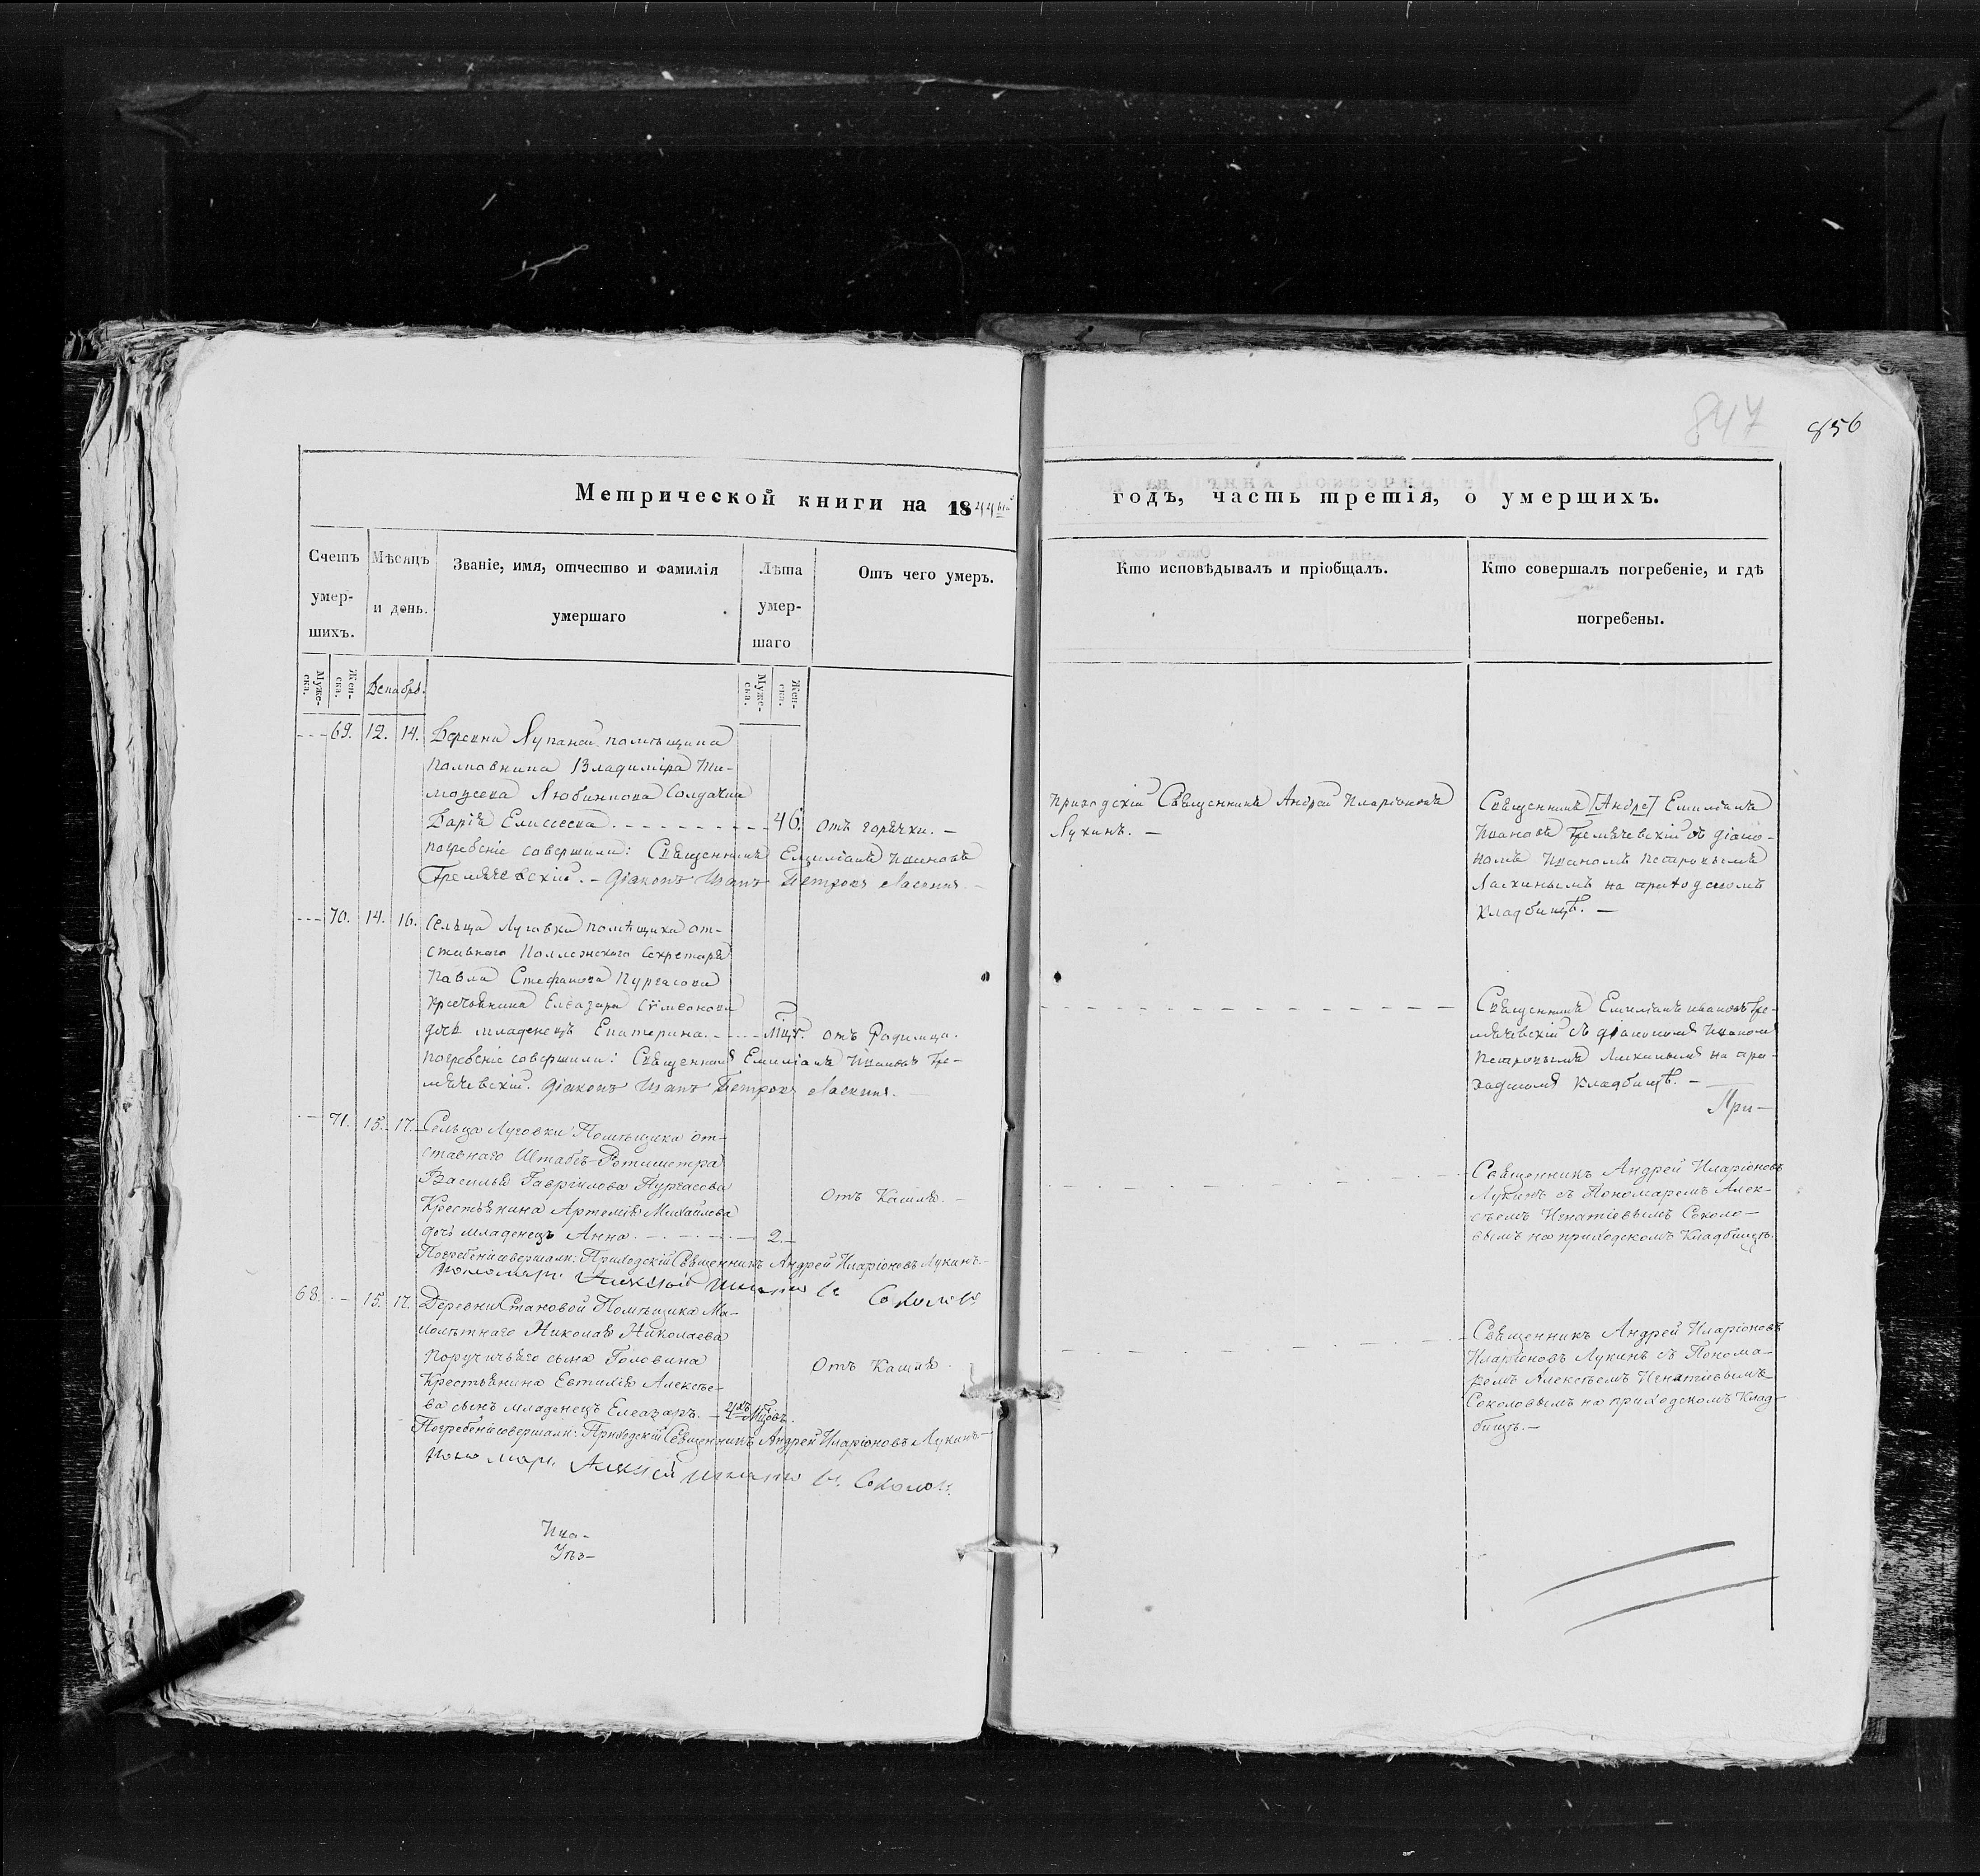 847
856
Метрической книги на 1844ый
годъ, часть третія, о умершихъ.
Счетъ умерших.
Мѣсяцъ и день.
Званіе, имя, отчество и фамилія умершаго
Лѣта умершаго
Отъ чего умеръ.
Кто исповѣдывалъ и пріобщалъ.
Кто совершалъ погребеніе, и гдѣ погребены.
Муже-ска.
Жен-ска.
Декабрь.
Муже-ска.
Жен-ска.
69. 12. 14. Деревни помѣщика
Полковника Владиміра Ти-
моѳеева Солдатка
Дарія Елисеева 46. отъ горячки. —
погребеніе совершали: Священникъ Емиліанъ Ивановъ
Гремячевскій. — Діаконъ Иванъ Петровъ Ласкинъ. —
Приходскій Священникъ Андрей Иларіоновъ
Лукинъ. —
Священникъ [Андре] Емиліанъ
Ивановъ Гремячевскій съ діако-
номъ Иваномъ Петровымъ
Ласкинымъ на приходскомъ
кладбищѣ. —
70. 14. 16. Сельца Луговки помѣщика от-
ставнаго Коллежскаго Секретаря
Павла Стефанова Пургасова
крестьянина Елеазара Сѵмеонова
дочь младенецъ Екатерина. Мцъ. отъ Родимца.
погребеніе совершали: Священникъ Емиліанъ Ивановъ Гре-
мячевскій. Діаконъ Иванъ Петровъ Ласкинъ. —
Священникъ Емиліанъ Ивановъ Гре-
мячевскій съ діакономъ Иваномъ
Петровымъ Ласкинымъ на при-
ходскомъ кладбищѣ. —
При-
71. 15. 17. Сельца Луговки Помѣщика от-
ставнаго Штабсъ-Ротмистра
Василья Гаврилова Пургасова
Крестьянина Артемія Михайлова
дочь младенецъ Анна. 2. Отъ Кашля. —
Погребеніе совершали: Приходскій Священникъ Андрей Иларіоновъ Лукинъ. —
пономарь Алексѣй Игнатіевъ Соколовъ
Священникъ Андрей Иларіоновъ
Лукинъ съ Пономаремъ Алек-
сѣемъ Игнатіевымъ Соколо-
вымъ на приходскомъ Кладбищѣ.
68. 15. 17. Деревни Становой Помѣщика Ма-
лолѣтнаго Николая Николаева
поручичьяго сына Головина
Крестьянина Евтихія Алексѣе-
ва сынъ младенецъ Елеазаръ. — 4хъ Мцовъ. Отъ Кашля.
Погребеніе совершали: Приходскій Священникъ Андрей Иларіоновъ Лукинъ. —
пономарь Алексѣй Игнатіевъ Соколовъ
Священникъ Андрей Иларіоновъ
Иларіоновъ Лукинъ съ Понома-
ремъ Алексѣемъ Игнатіевымъ
Соколовымъ на приходскомъ Клад-
бищѣ. —
Уѣз-